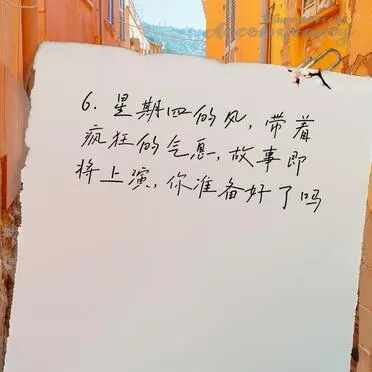 6. 星期四的风, 带着
疯狂的气息, 故事即
将上演, 你准备好了吗